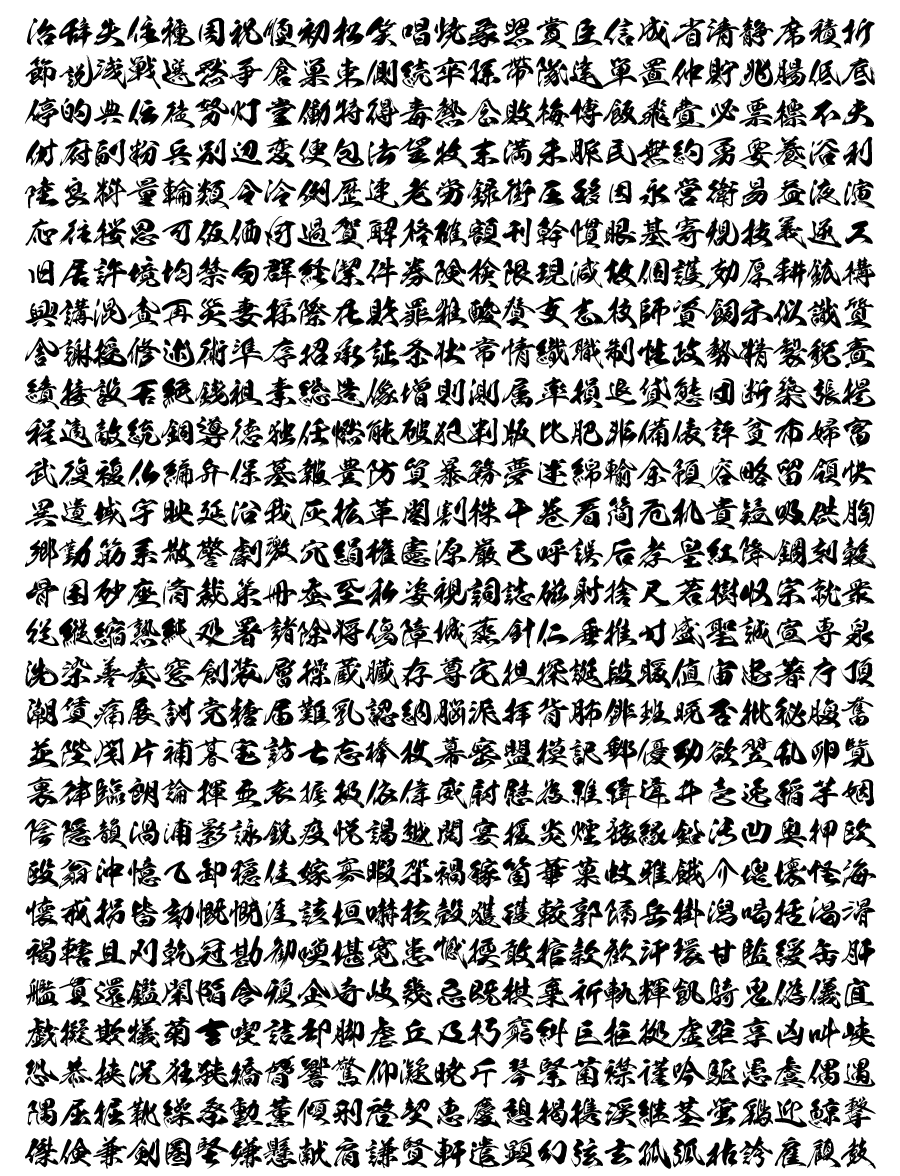 治辞失住種周祝順初松笑唱焼象照賞臣信成省清静席積折
節説浅戦選然争倉巣束側続卒孫帯隊達単置仲貯兆腸低底
停的典伝徒努灯堂働特得毒熱念敗梅博飯飛費必票標不夫
付府副粉兵別辺変便包法望牧末満未脈民無約勇要養浴利
陸良料量輪類令冷例歴連老労録街圧移因永営衛易益液演
応往桜恩可仮価河過賀解格確額刊幹慣眼基寄規技義逆久
旧居許境均禁句群経潔件券険検限現減故個護効厚耕鉱構
興講混査再災妻採際在財罪雑酸賛支志枝師資飼示似識質
舎謝授修述術準序招承証条状常情織職制性政勢精製税責
績接設舌絶銭祖素総造像増則測属率損退貸態団断築張提
程適敵統銅導徳独任燃能破犯判版比肥非備俵評貧布婦富
武復複仏編弁保墓報豊防貿暴務夢迷綿輸余預容略留領快
異遺域宇映延沿我灰拡革閣割株干巻看簡危机貴疑吸供胸
郷勤筋系敬警劇激穴絹権憲源厳己呼誤后孝皇紅降鋼刻穀
骨困砂座済裁策冊蚕至私姿視詞誌磁射捨尺若樹収宗就衆
従縦縮熟純処署諸除将傷障城蒸針仁垂推寸盛聖誠宣専泉
洗染善奏窓創装層操蔵臓存尊宅担探誕段暖値宙忠著庁頂
潮賃痛展討党糖届難乳認納脳派拝背肺俳班晩否批秘腹奮
並陛閉片補暮宝訪亡忘棒枚幕密盟模訳郵優幼欲翌乱卵覧
裏律臨朗論揮亜衣握扱依偉威尉慰為維緯違井壱逸稲芋姻
陰隠韻渦浦影詠鋭疫悦謁越閲宴援炎煙猿縁鉛汚凹奥押欧
殴翁沖憶乙卸穏佳嫁寡暇架禍稼箇華菓蚊雅餓介塊壊怪海
懐戒拐皆劾慨概涯該垣嚇核殻獲穫較郭隔岳掛潟喝括渇滑
褐轄且刈乾冠勘勧喚堪寛患憾換敢棺款歓汗環甘監緩缶肝
艦貫還鑑閑陥含頑企奇岐幾忌既棋棄祈軌輝飢騎鬼偽儀宜
戯擬欺犠菊吉喫詰却脚虐丘及朽窮糾巨拒拠虚距享凶叫峡
恐恭挟況狂狭矯脅響驚仰凝暁斤琴緊菌襟謹吟駆愚虞偶遇
隅屈掘靴繰桑勲薫傾刑啓契恵慶憩掲携渓継茎蛍鶏迎鯨撃
傑倹兼剣圏堅嫌懸献肩謙賢軒遣顕幻弦玄孤弧枯誇雇顧鼓